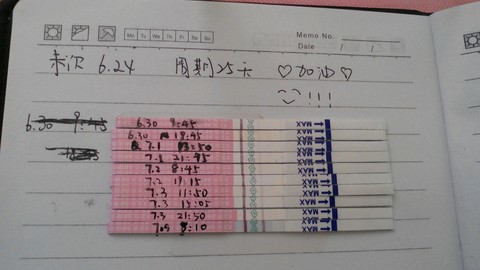 Memo No.
Mo Tu We Th Fr Sa Su
Date / /
末次 6.24 周期25天 ♡加油♡
!!!
6.30 9:45
6.30 19:45
7.1 13:50
7.1 21:45
7.2 8:45
7.2 19:15
7.3 11:50
7.3 15:05
7.3 21:50
MAX
MAX
MAX
MAX
MAX
MAX
MAX
MAX
MAX
MAX